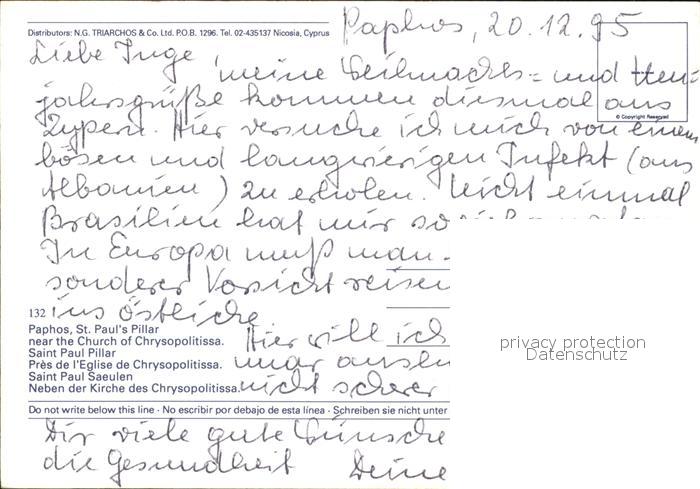 Distributors: N.G. TRIARCHOS & Co. Ltd. P.O.B. 1296. Tel. 02-435137 Nicosia, Cyprus
Paphos, 20.12.95
Liebe Inge,
meine Weihnachts= und Neu=
jahrsgrüße kommen diesmal aus
Zypern. Hier versuche ich mich von einem
© Copyright Reserved
bösen und langwierigen Infekt (aus
Albanien) zu erholen. Nicht einmal
Brasilien hat mir so
In Europa muß man
sonderer Vorsicht reisen
132 ins östliche
Paphos, St. Paul's Pillar
near the Church of Chrysopolitissa.
Hier will ich
Saint Paul Pillar
Près de l'Eglise de Chrysopolitissa.
Saint Paul Saeulen
Neben der Kirche des Chrysopolitissa.
nicht
privacy protection
Datenschutz
Do not write below this line · No escribir por debajo de esta línea · Schreiben sie nicht unter
Dir viele gute Wünsche
die Gesundheit Deine